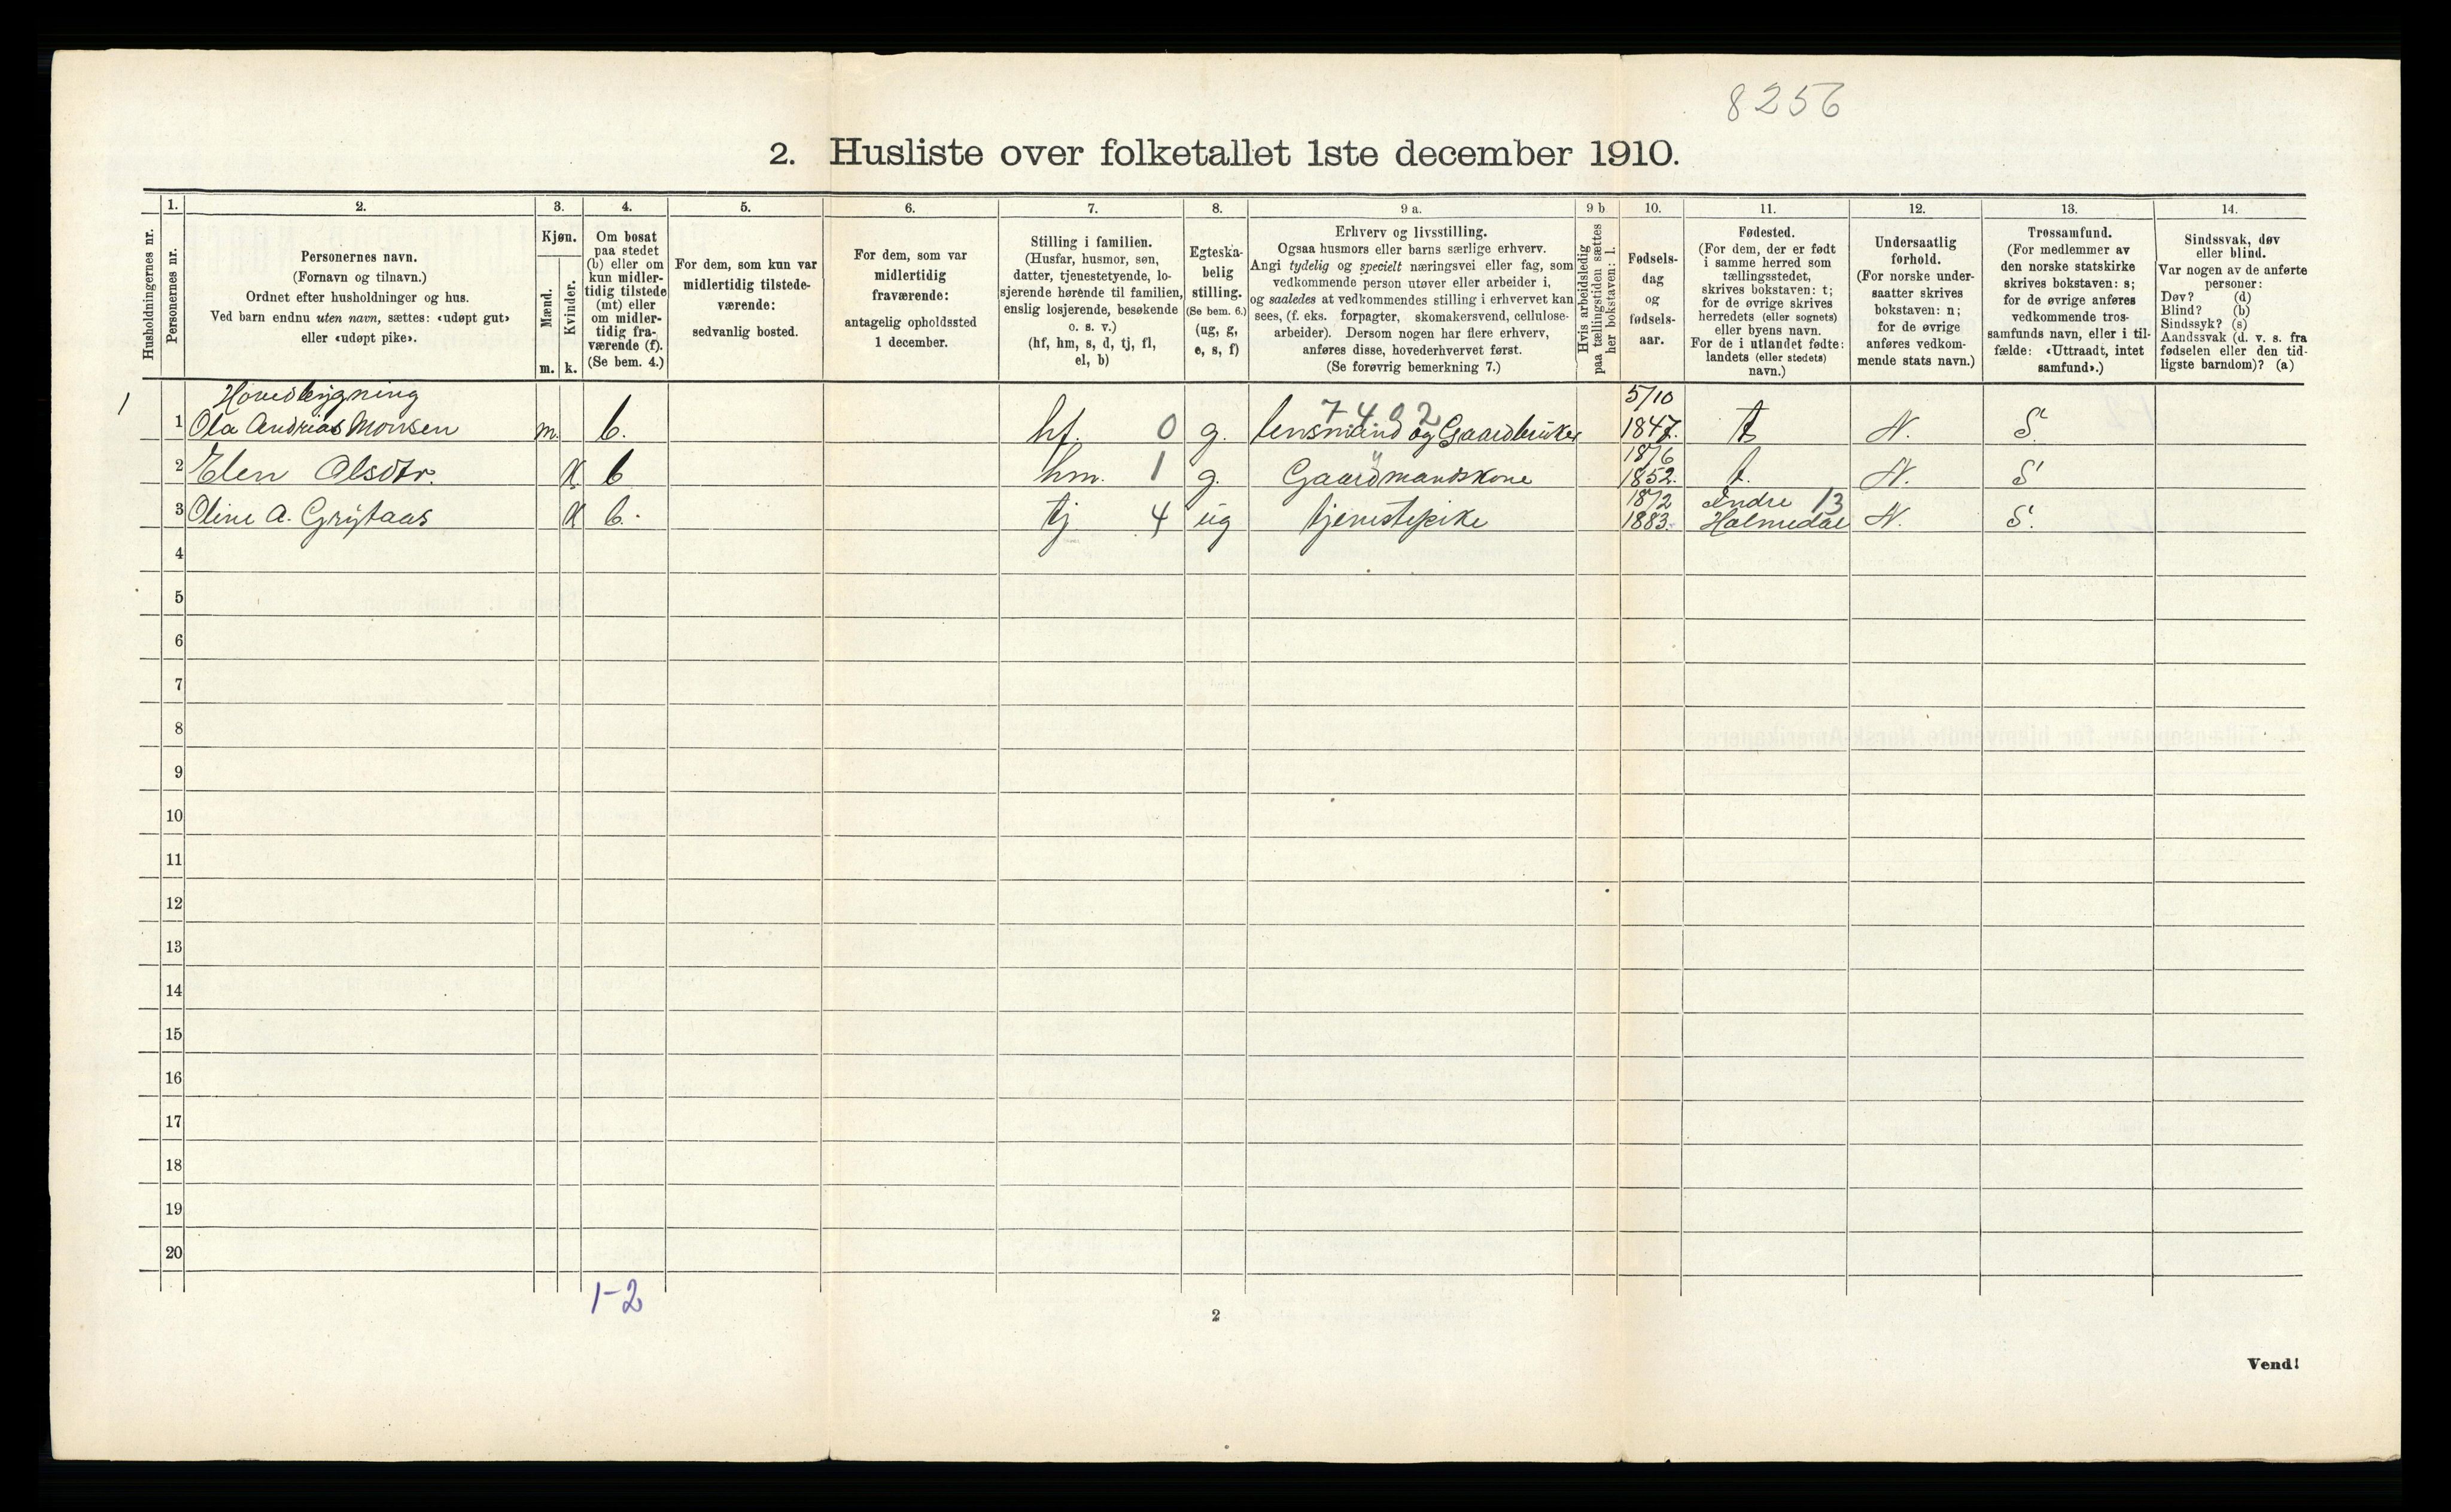 8256
2. Husliste over folketallet 1ste december 1910.
Husholdningernes nr.
1.
Personernes nr.
2.
Personernes navn.
(Fornavn og tilnavn.)
Ordnet efter husholdninger og hus.
Ved barn endnu uten navn, sættes: «udøpt gut»
eller «udøpt pike».
3.
Kjøn.
Mænd.
Kvinder.
m. k.
4.
Om bosat
paa stedet
(b) eller om
kun midler-
tidig tilstede
(mt) eller
om midler-
tidig fra-
værende (f).
(Se bem. 4.)
5.
For dem, som kun var
midlertidig tilstede-
værende:
sedvanlig bosted.
6.
For dem, som var
midlertidig
fraværende:
antagelig opholdssted
1 december.
7.
Stilling i familien.
(Husfar, husmor, søn,
datter, tjenestetyende, lo-
sjerende hørende til familien,
enslig losjerende, besøkende
o. s. v.)
(hf, hm, s, d, tj, fl,
el, b)
8.
Egteska-
belig
stilling.
(Se bem. 6.)
(ug, g,
e, s, f)
9 a.
Erhverv og livsstilling.
Ogsaa husmors eller barns særlige erhverv.
Angi tydelig og specielt næringsvei eller fag, som
vedkommende person utøver eller arbeider i,
og saaledes at vedkommendes stilling i erhvervet kan
sees, (f. eks. forpagter, skomakersvend, cellulose-
arbeider). Dersom nogen har flere erhverv,
anføres disse, hovederhvervet først.
(Se forøvrig bemerkning 7.)
9 b
Hvis arbeidsledig
paa tællingstiden sættes
her bokstaven: l.
10.
Fødsels-
dag
og
fødsels-
aar.
11.
Fødested.
(For dem, der er født
i samme herred som
tællingsstedet,
skrives bokstaven: t;
for de øvrige skrives
herredets (eller sognets)
eller byens navn.
For de i utlandet fødte:
landets (eller stedets)
navn.)
12.
Undersaatlig
forhold.
(For norske under-
saatter skrives
bokstaven: n;
for de øvrige
anføres vedkom-
mende stats navn.)
13.
Trossamfund.
(For medlemmer av
den norske statskirke
skrives bokstaven: s;
for de øvrige anføres
vedkommende tros-
samfunds navn, eller i til-
fælde: «Uttraadt, intet
samfund».)
14.
Sindssvak, døv
eller blind.
Var nogen av de anførte
personer:
Døv? (d)
Blind? (b)
Sindssyk? (s)
Aandssvak (d. v. s. fra
fødselen eller den tid-
ligste barndom)? (a)
1 Hovedbygning 7402 5/10
1 Ola Andrias Monsen m. b. hf. 0 g. lensmand og Gaardbruker 1847. t N. S.
18/6
2 Elen Olsdtr. K b hm. 1 g. Gaardmandskone 1852. t. N. S
18/2 Indre 13
3 Oline A. Grytaas K b. tj 4 ug tjenestepike 1883. Holmedal N. S.
4
5
6
7
8
9
10
11
12
13
14
15
16
17
18
19
20
1-2
2
Vend!